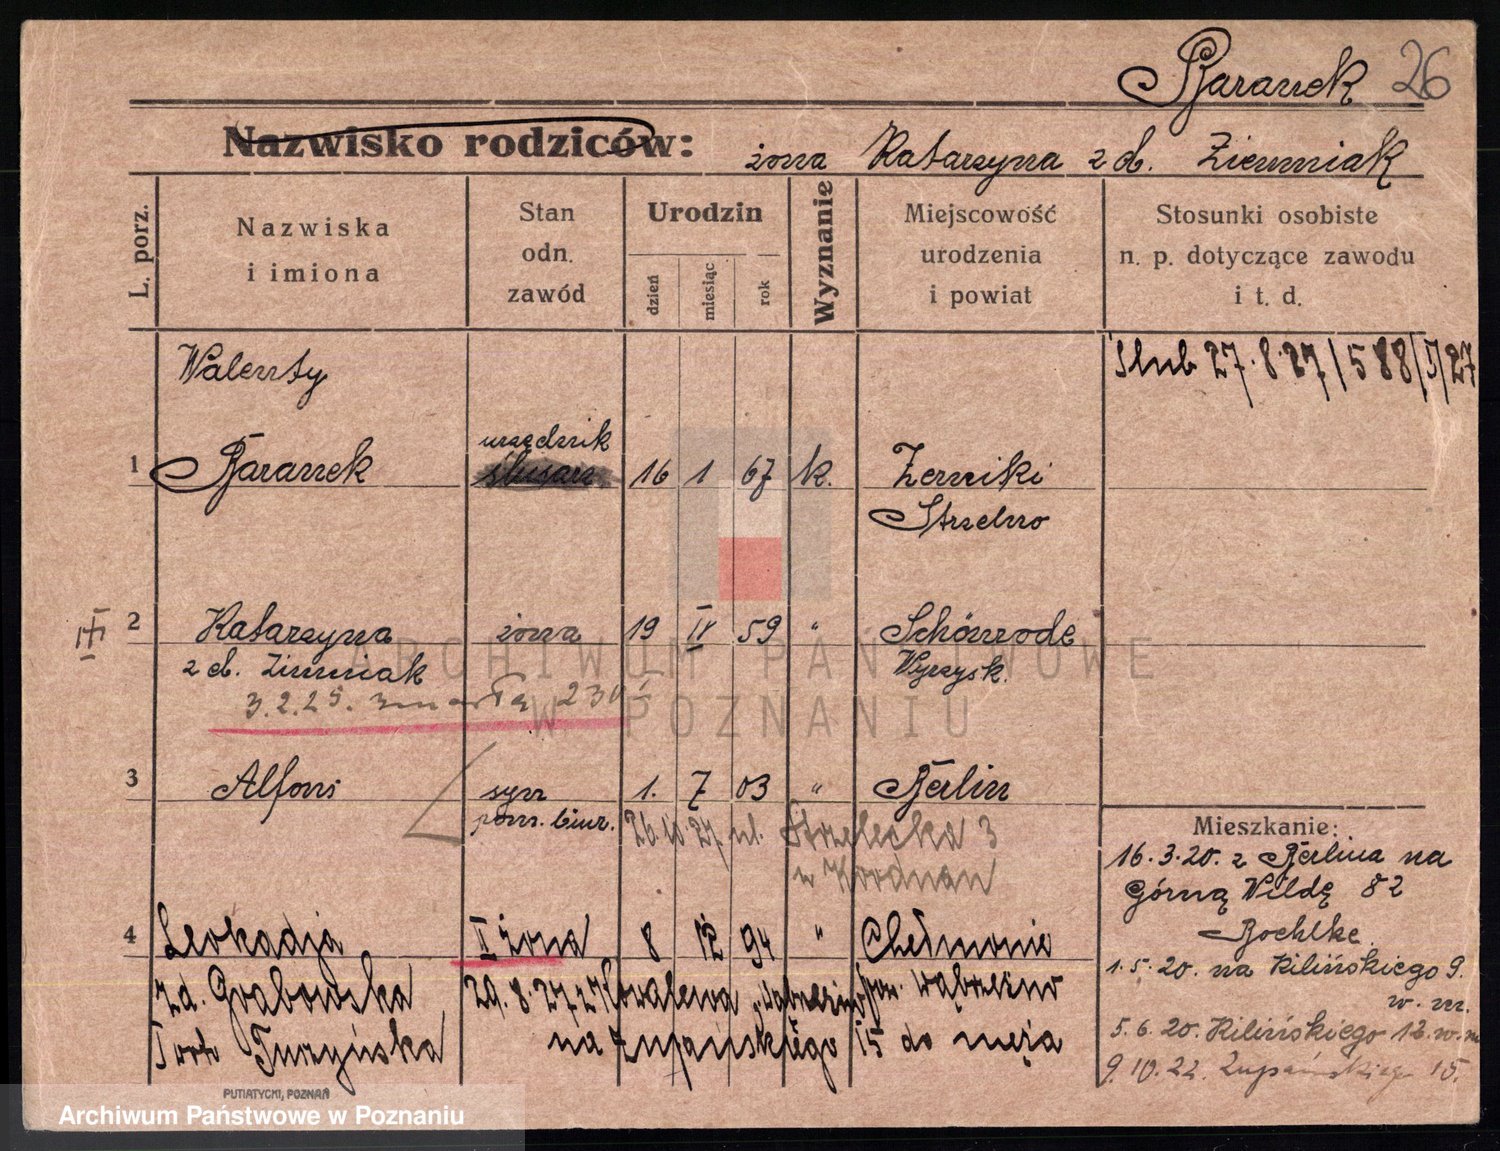 Baranek 26
Nazwisko rodziców: żona Katarzyna z d. Ziemniak
L. porz.
Nazwiska
i imiona
Stan
odn.
zawód
Urodzin
dzień
miesiąc
rok
Wyznanie
Miejscowość
urodzenia
i powiat
Stosunki osobiste
n. p. dotyczące zawodu
i t. d.
Walenty
Ślub 27.8.27/588/I/27
urzędnik
1 Baranek ślusarz 16 1 67 k. Zerniki
Strzelno
2 Katarzyna żona 19 IV 59 " Schönrode
z d. Zimniak Wyrzysk.
3.2.25. zmarła 230
3 Alfons syn 1. 7 03 " Berlin
pom. biur. 26.10.27 ul. Strzelecka 3
4 Leokadja II żona 8 12 94 " Chełmonie
zd. Grabowska 29.8.27 z Kowalewa pow. Wąbrzeźno
Turzyńska na Żupańskiego 15 do męża
Mieszkanie:
16.3.20. z Berlina na
Górną Wildę 82
Boehlke
1.5.20. na Kilińskiego 9.
w. m.
5.6.20. Kilińskiego 12 w. m.
9.10.22. Żupańskiego 15.
ARCHIWUM PAŃSTWOWE
W POZNANIU
PUTIATYCKI, POZNAŃ
Archiwum Państwowe w Poznaniu